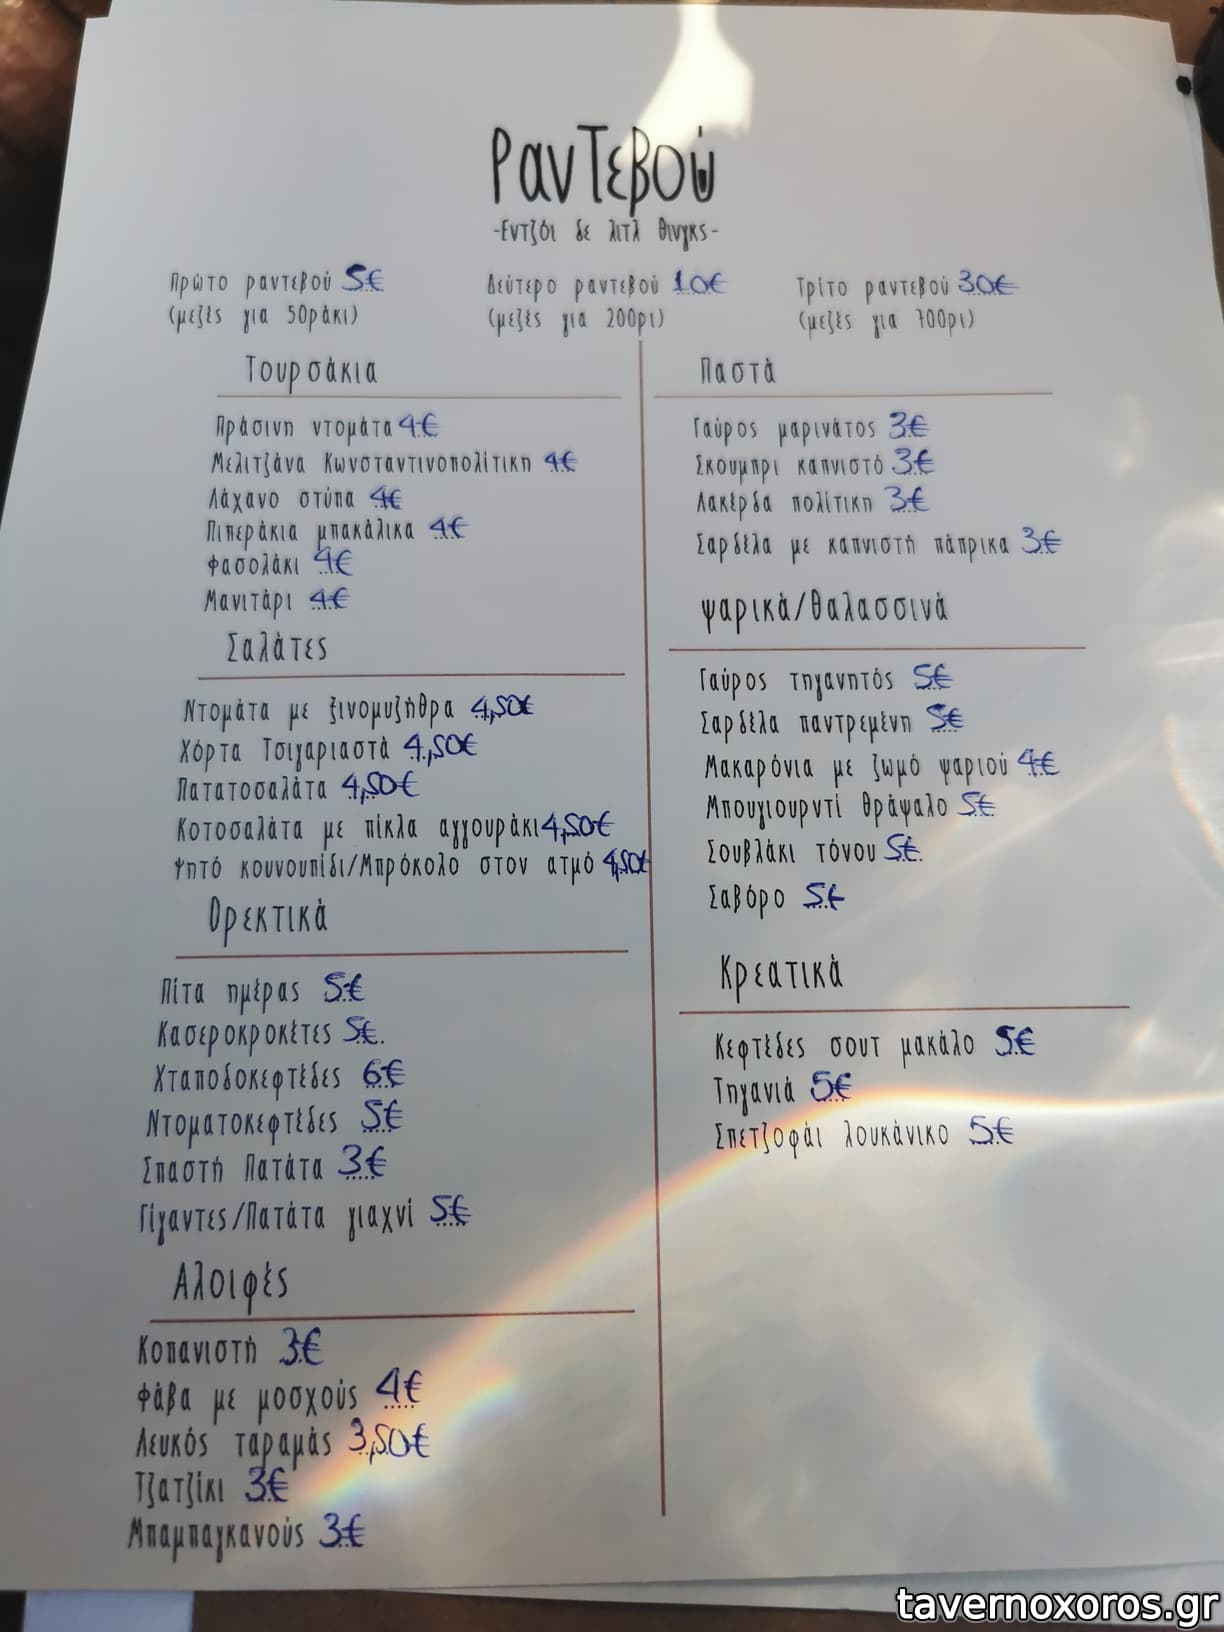 Ραντεβού
-Εντζόι δε λιτλ θινγκς-
Πρώτο ραντεβού 5€
(μεζές για 50ράκι)
Δεύτερο ραντεβού 10€
(μεζές για 200ρι)
Τρίτο ραντεβού 30€
(μεζές για 700ρι)
Τουρσάκια
Πράσινη ντομάτα 4€
Μελιτζάνα Κωνσταντινοπολίτικη 4€
Λάχανο στύπα 4€
Πιπεράκια μπακάλικα 4€
Φασολάκι 4€
Μανιτάρι 4€
Σαλάτες
Ντομάτα με ξινομυζήθρα 4,50€
Χόρτα Τσιγαριαστά 4,50€
Πατατοσαλάτα 4,50€
Κοτοσαλάτα με πίκλα αγγουράκι 4,50€
Ψητό κουνουπίδι/Μπρόκολο στον ατμό 4,50€
Ορεκτικά
Πίτα ημέρας 5€
Κασεροκροκέτες 5€.
Χταποδοκεφτέδες 6€
Ντοματοκεφτέδες 5€
Σπαστή Πατάτα 3€
Γίγαντες/Πατάτα γιαχνί 5€
Αλοιφές
Κοπανιστή 3€
Φάβα με μοσχούς 4€
Λευκός ταραμάς 3,50€
Τζατζίκι 3€
Μπαμπαγκανούς 3€
Παστά
Γαύρος μαρινάτος 3€
Σκουμπρι καπνιστό 3€
Λακέρδα πολίτικη 3€
Σαρδέλα με καπνιστή πάπρικα 3€
Ψαρικά/Θαλασσινά
Γαύρος τηγανητός 5€
Σαρδέλα παντρεμένη 5€
Μακαρόνια με ζωμό ψαριού 4€
Μπουγιουρντί θράψαλο 5€
Σουβλάκι τόνου 5€.
Σαβόρο 5€
Κρεατικά
Κεφτέδες σουτ μακάλο 5€
Τηγανιά 5€
Σπετζοφάι λουκάνικο 5€
tavernoxoros.gr